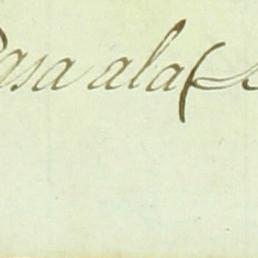 Pasa ala